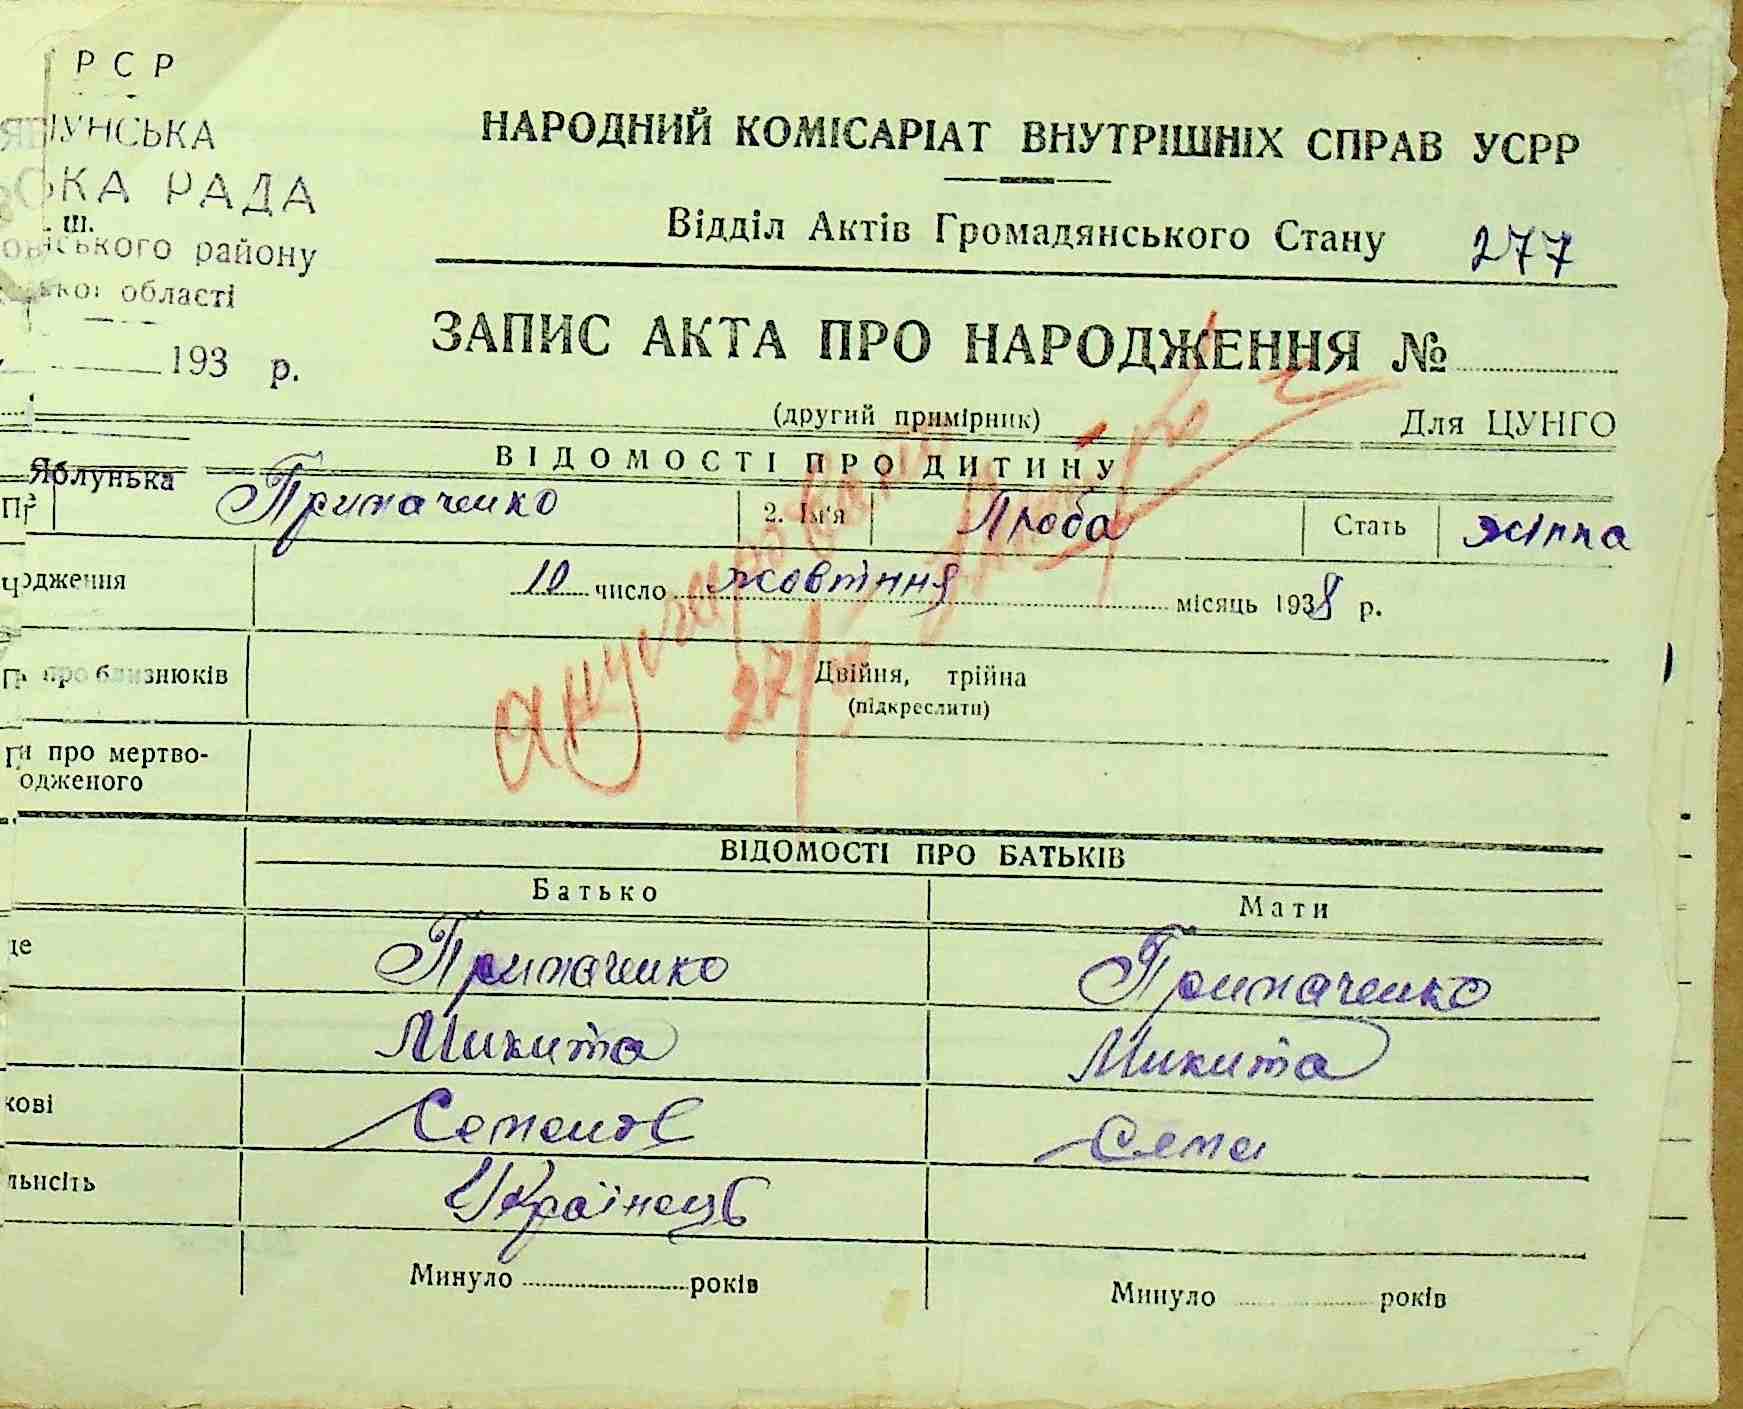 РСР
ЯБЛУНСЬКА
СЬКА РАДА
ш.
ського району
ської області
193 р.
НАРОДНИЙ КОМІСАРІАТ ВНУТРІШНІХ СПРАВ УСРР
Відділ Актів Громадянського Стану 277
ЗАПИС АКТА ПРО НАРОДЖЕННЯ №
(другий примірник) Для ЦУНГО
ВІДОМОСТІ ПРО ДИТИНУ
Яблунька
Прі Примаченко 2. Ім'я Люба Стать жінка
одження 10 число жовтння місяць 1938 р.
про близнюків Двійня, трійна
(підкреслити)
анулювати
27
и про мертво-
одженого
ВІДОМОСТІ ПРО БАТЬКІВ
Батько Мати
ще Примаченко Примаченко
Микита Микита
кові Семенов Семи
льність Українець
Минуло років Минуло років